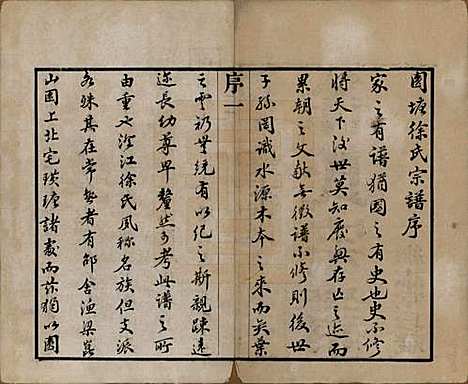 園塘徐氏宗譜序
家之有譜猶國之有史也史不修
將天下後世莫知廢興存亡之迹而
累朝之文獻無徵譜不修則後世
子孫罔識水源木本之來而奕葉
序一
之雲礽無統有以紀之斯親疎遠
近長幼尊卑釐然可考此譜之所
由重也澄江徐氏夙称名族但支派
各殊其在常熟者有邵舍漁梁崑
山園上北宅璜塘諸處而茲獨以園